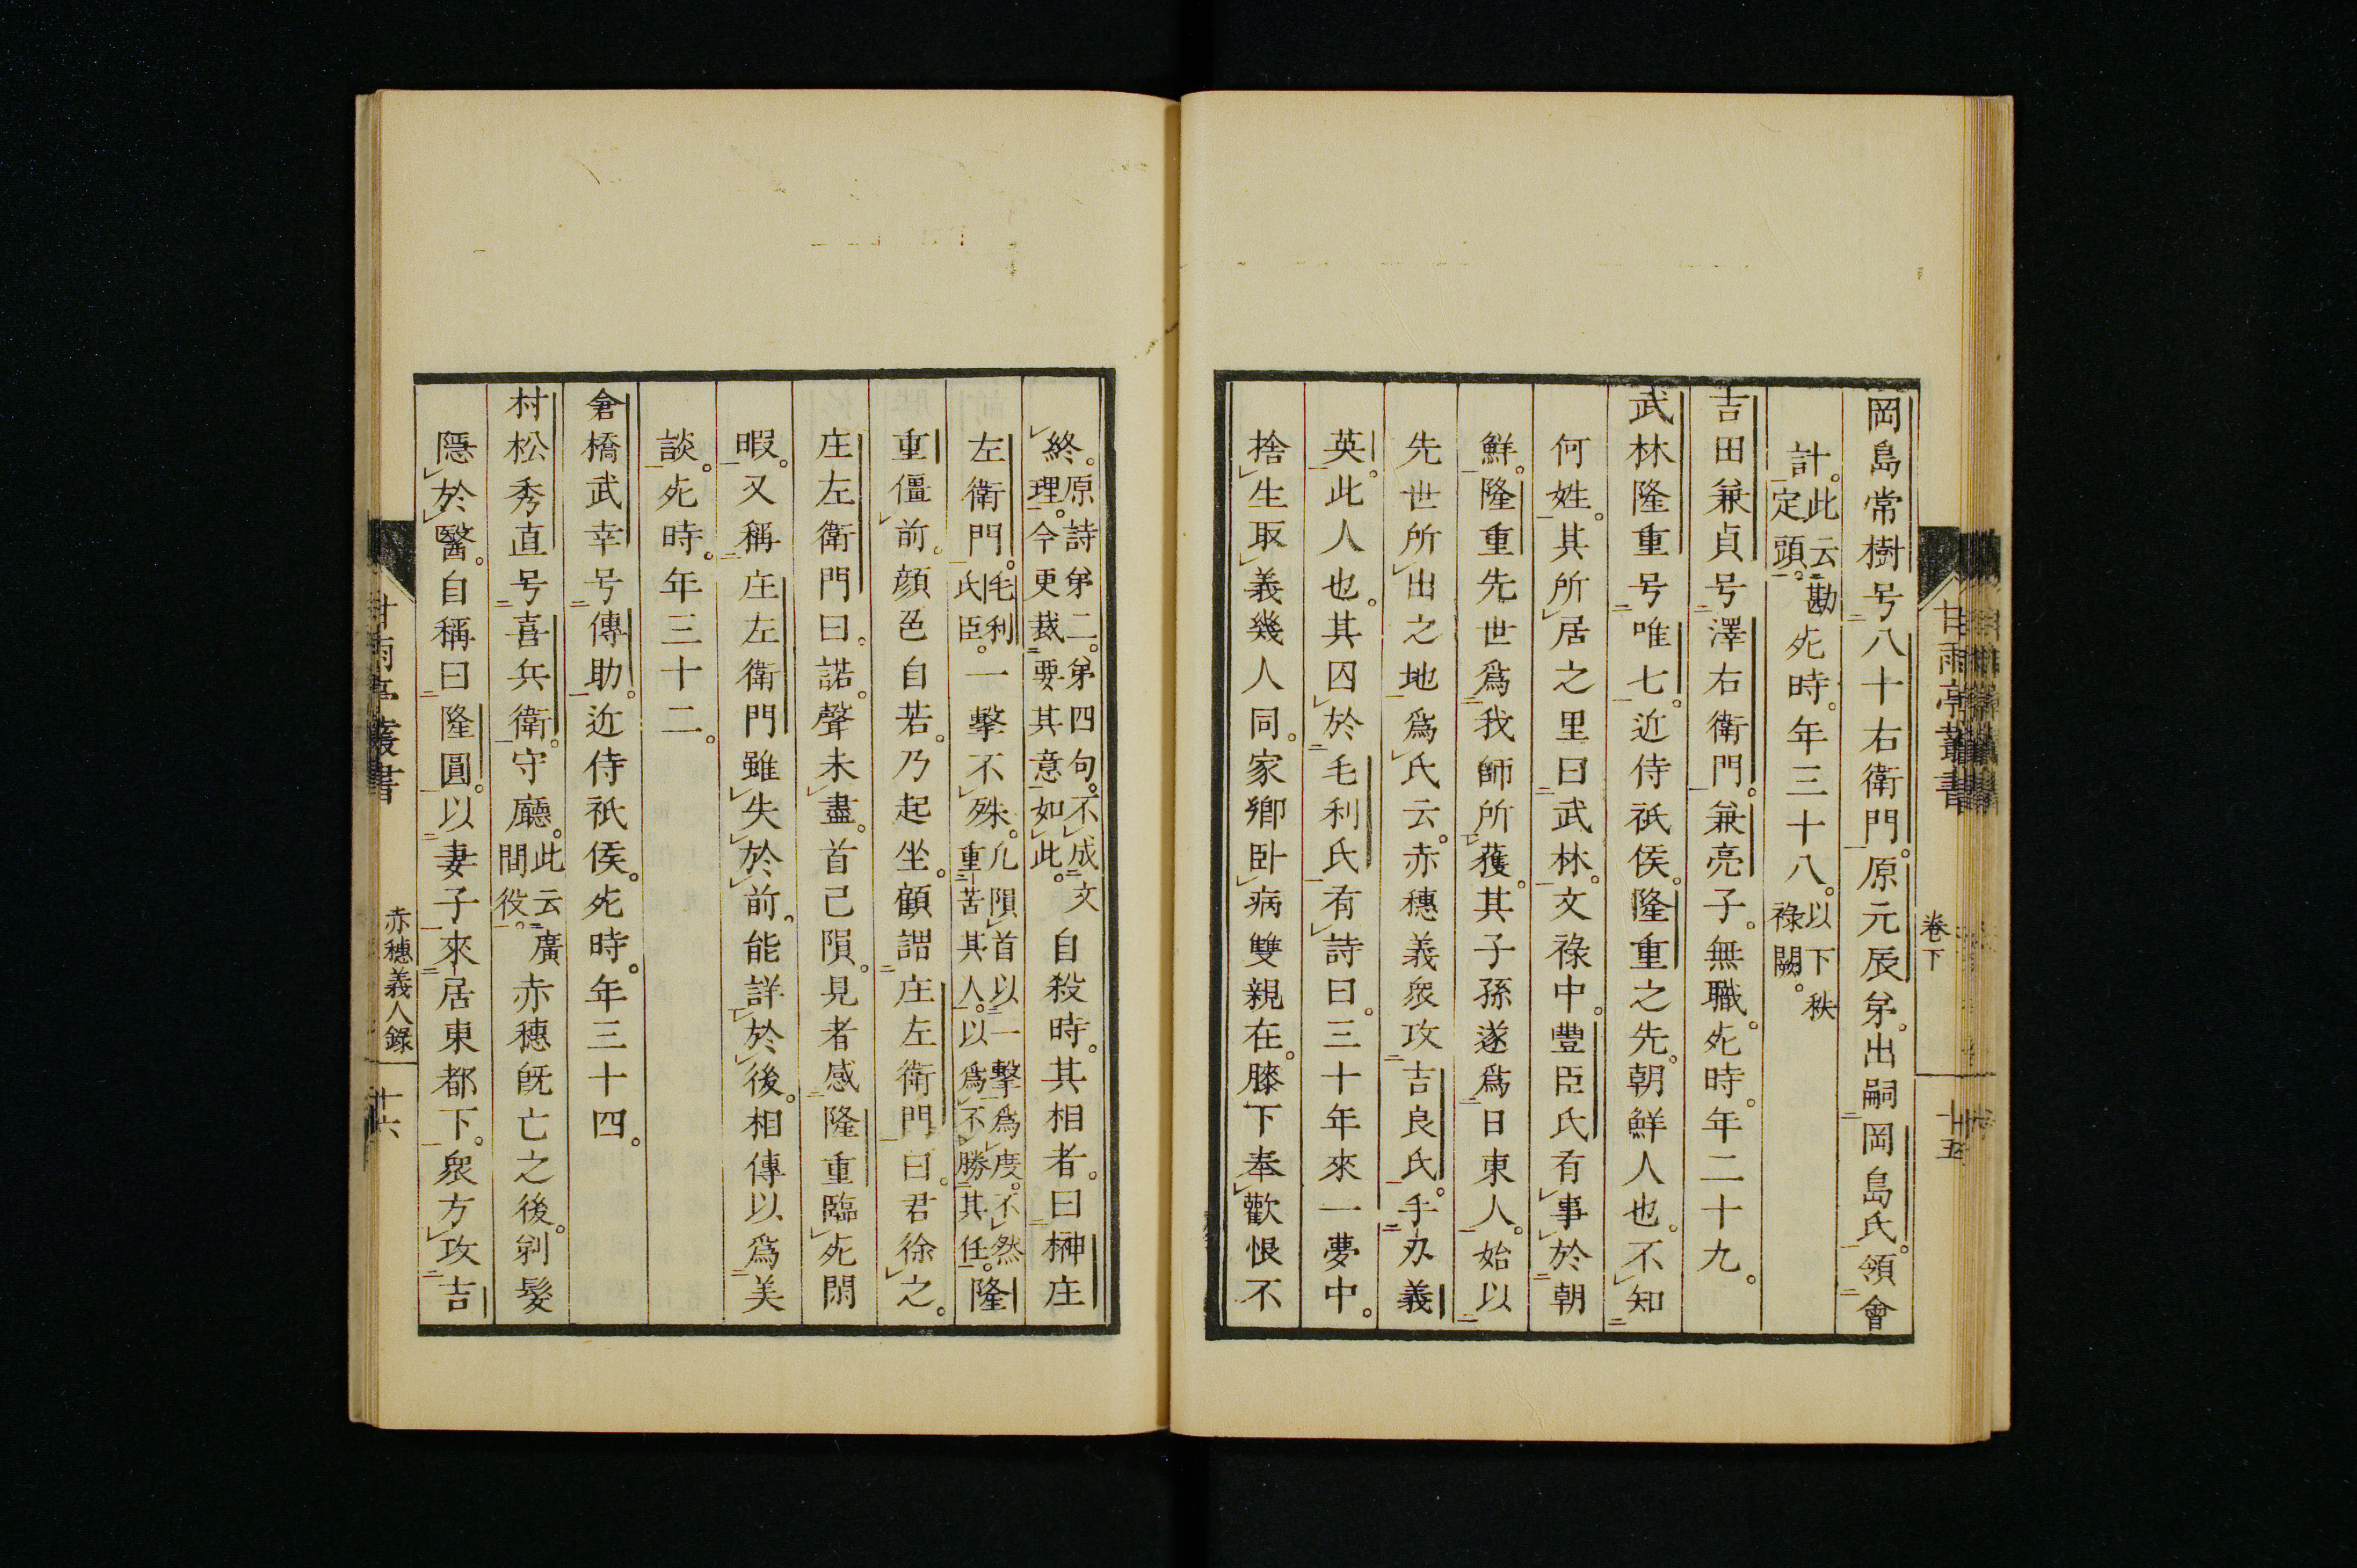 岡島常樹号八十右衛門。原元辰弟。出嗣岡島氏。領會
計。此云勘定頭。死時。年三十八。以下秩祿闕。
吉田兼貞号澤右衛門。兼亮子。無職。死時。年二十九。
武林隆重号唯七。近侍祇侯。隆重之先。朝鮮人也。不知
何姓。其所居之里曰武林。文祿中。豐臣氏有事於朝
鮮。隆重先世爲我師所獲。其子孫遂爲日東人。始以
先世所出之地爲氏云。赤穗義衆攻吉良氏。手刃義
英。此人也。其囚於毛利氏有詩曰。三十年來一夢中。
捨生取義幾人同。家鄉臥病雙親在。膝下奉歡恨不
甘雨亭叢書
卷下
十五
終。原詩第二。第四句。不成文理。今更裁要其意如此。自殺時。其相者。曰榊庄
左衛門。毛利氏臣。一擊不殊。凡隕首以一擊爲度。不然重苦其人。以爲不勝其任。隆
重僵前。顏色自若。乃起坐。顧謂庄左衛門曰。君徐之。
庄左衛門曰。諾。聲未盡。首已隕。見者感隆重臨死閑
暇。又稱庄左衛門雖失於前。能詳於後。相傳以爲美
談。死時。年三十二。
倉橋武幸号傳助。近侍祇侯。死時。年三十四。
村松秀直号喜兵衛。守廳。此云廣間役。赤穗旣亡之後。剃髮
隱於醫。自稱曰隆圓。以妻子來居東都下。衆方攻吉
甘雨亭叢書
赤穗義人錄
十六